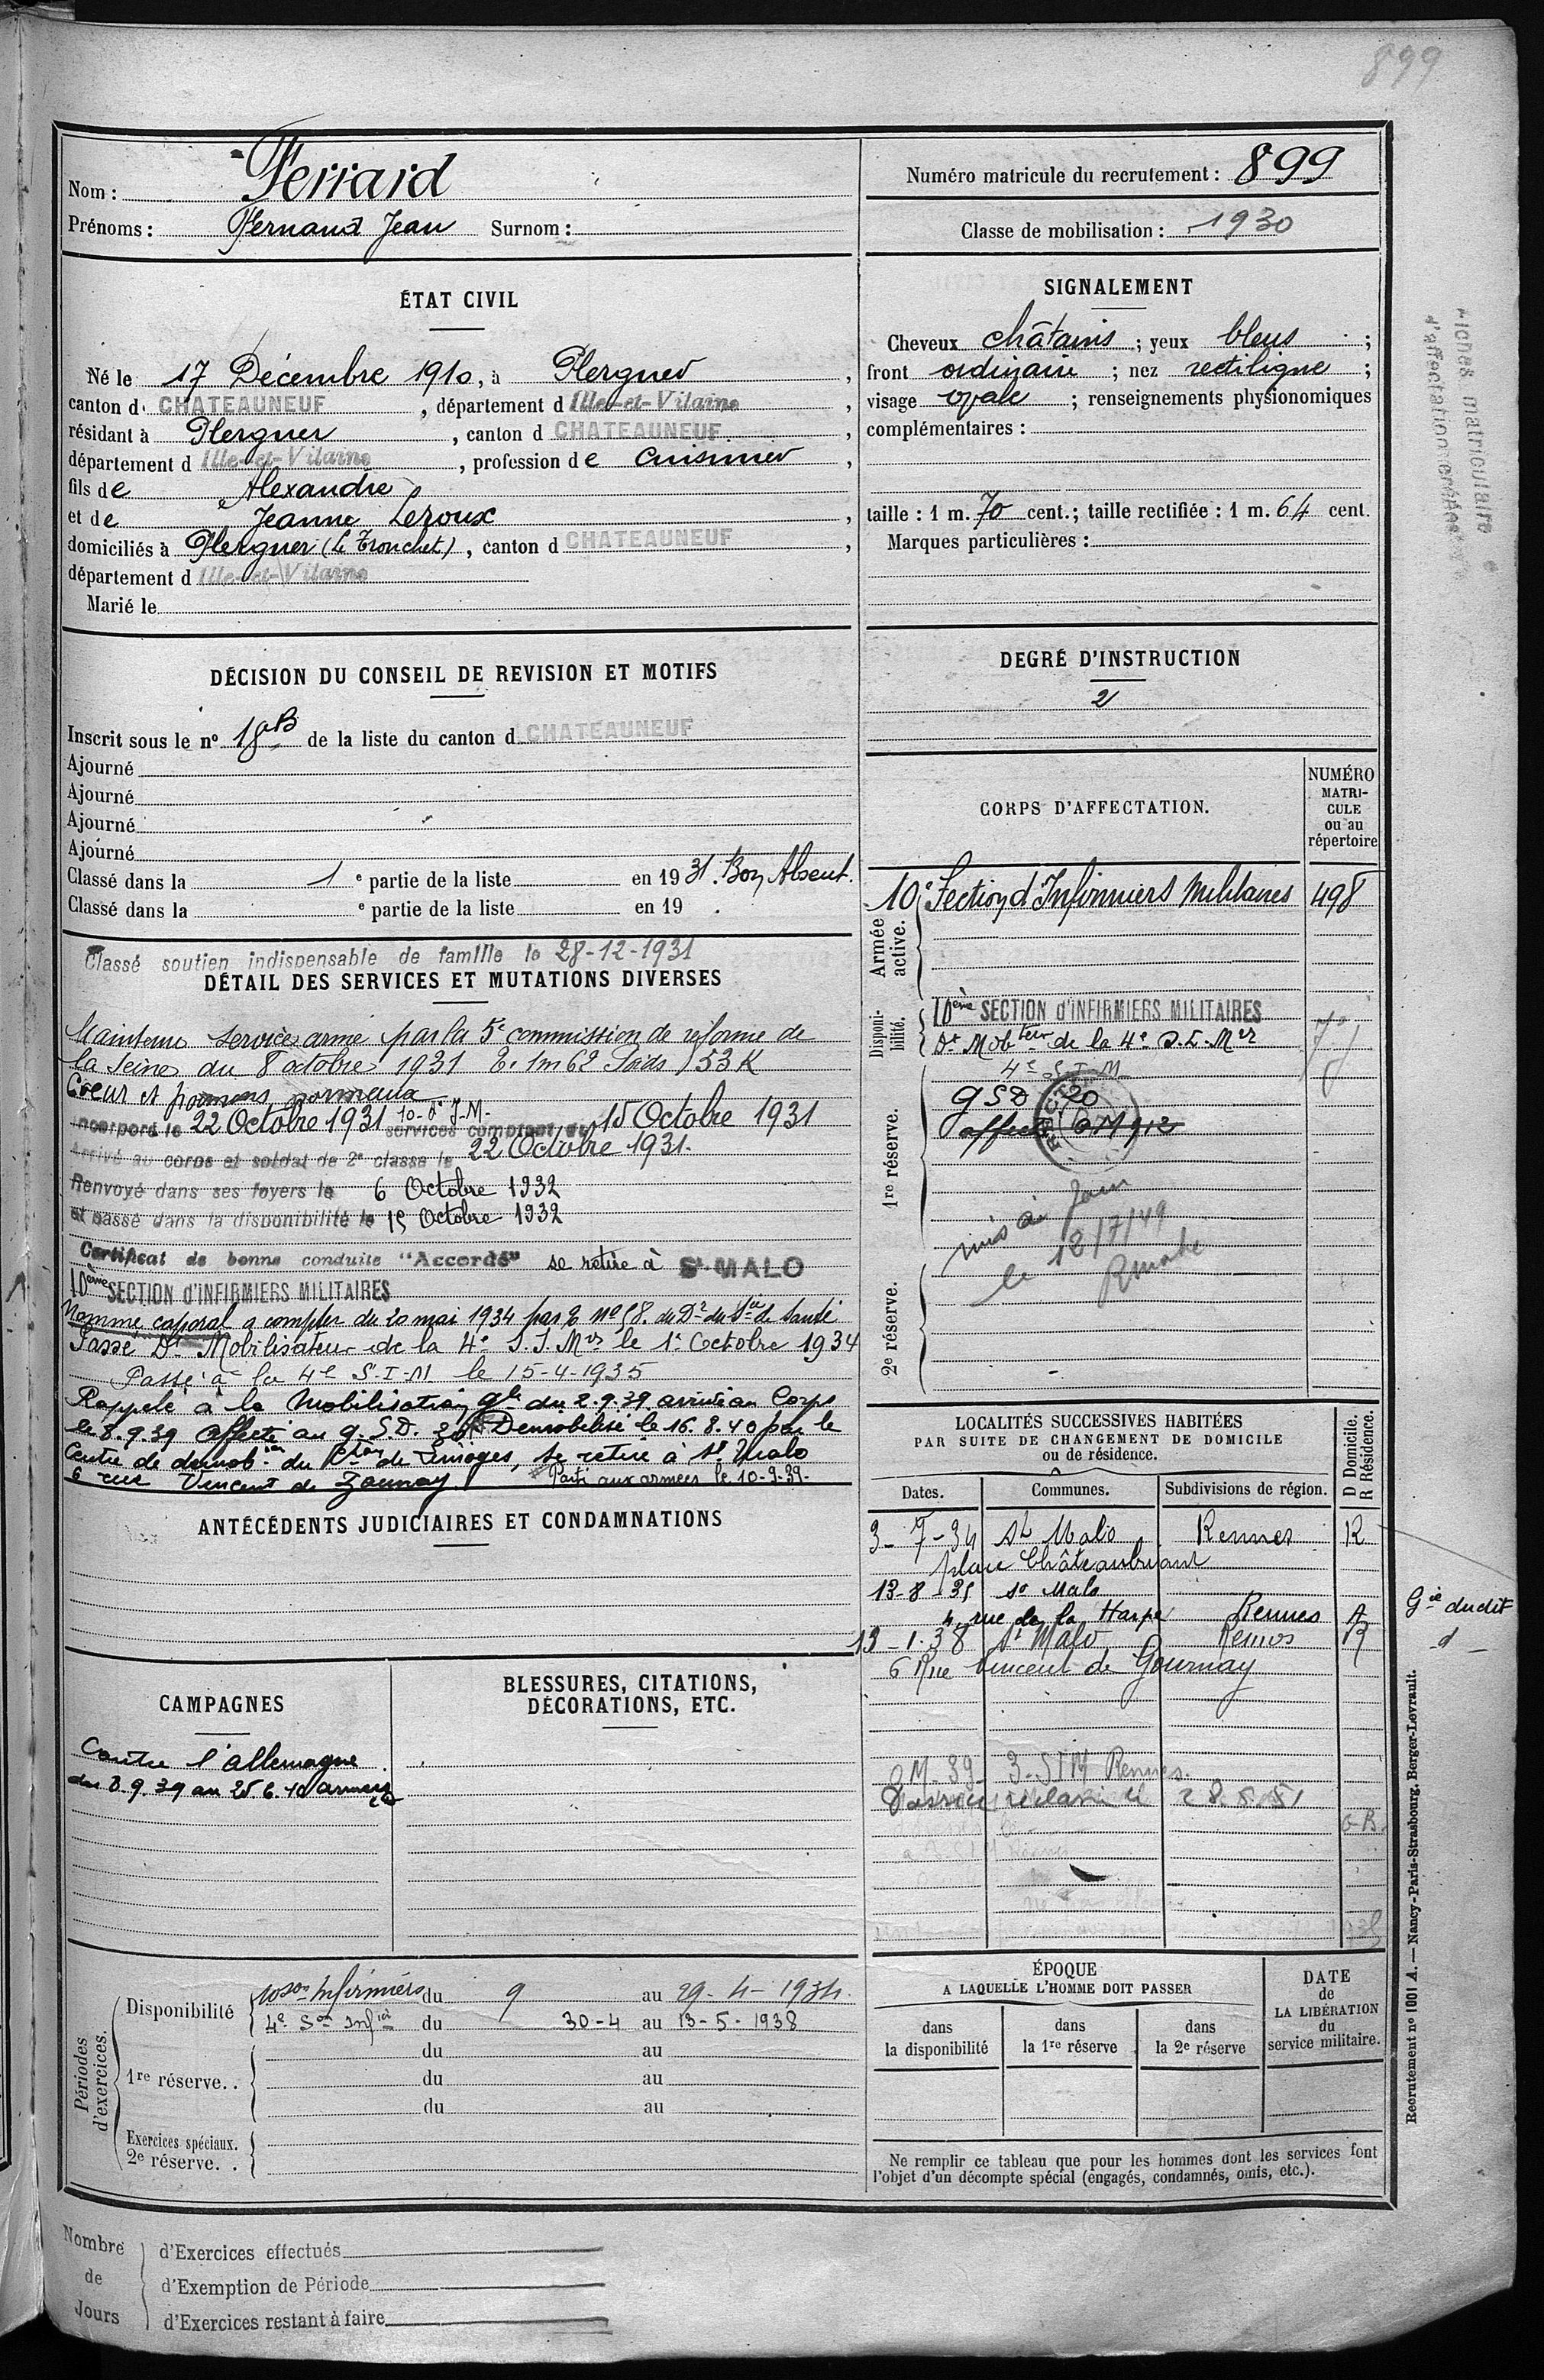 899
Nom : Ferrard
Prénoms : Fernand Jean Surnom :
Numéro matricule du recrutement : 899
Classe de mobilisation : 1930
ÉTAT CIVIL
Né le 17 Décembre 1910, à Plerguer,
canton d CHATEAUNEUF, département d Ille-et-Vilaine,
résidant à Plerguer, canton d CHATEAUNEUF,
département d Ille-et-Vilaine, profession de cuisinier,
fils de Alexandre
et de Jeanne Leroux,
domiciliés à Plerguer (Le Tronchet), canton d CHATEAUNEUF,
département d Ille-et-Vilaine
Marié le
SIGNALEMENT
Cheveux châtains ; yeux bleus ;
front ordinaire ; nez rectiligne ;
visage ovale ; renseignements physionomiques
complémentaires :
taille : 1 m. 70 cent.; taille rectifiée : 1 m. 64 cent.
Marques particulières :
Fiches matriculaire
d'affectation
DÉCISION DU CONSEIL DE REVISION ET MOTIFS
Inscrit sous le n° 18 de la liste du canton d CHATEAUNEUF
Ajourné
Ajourné
Ajourné
Ajourné
Classé dans la 1e partie de la liste en 1931. Bon Absent.
Classé dans la e partie de la liste en 19 .
DEGRÉ D'INSTRUCTION
2
Classé soutien indispensable de famille le 28-12-1931
DÉTAIL DES SERVICES ET MUTATIONS DIVERSES
Maintenu service armé par la 5e commission de réforme de
la Seine du 8 octobre 1931 T. 1m62 Poids 53 K
Coeur et poumons normaux
Incorporé le 22 Octobre 1931 10e d'I.M. services comptant du 15 Octobre 1931
Arrivé au corps et soldat de 2e classe le 22 Octobre 1931.
Renvoyé dans ses foyers le 6 Octobre 1932
et passé dans la disponibilité le 15 Octobre 1932
Certificat de bonne conduite "Accordé" se retire à St-MALO
10ème SECTION d'INFIRMIERS MILITAIRES
Nommé caporal à compter du 20 mai 1934 par O No 58. du Dr du Sce de Santé
Passé Dt Mobilisateur de la 4e S.I.Mres le 1er Octobre 1934
Passé à la 4e S-I-M le 15-4-1935
Rappelé à la Mobilisation gle du 2.9.39 arrivé au Corps
le 8.9.39 affecté au G.S.D. 20 Démobilisé le 16.8.40 par le
Centre de démobon du Cton de Limoges, se retire à St Malo
6 rue Vincent de Gournay Parti aux armées le 10-9-39-
CORPS D'AFFECTATION.
NUMÉRO MATRICULE ou au répertoire
Armée active.
10e Section d'Infirmiers Militaires 498
Disponibilité.
10ème SECTION d'INFIRMIERS MILITAIRES
Dt Mobteur de la 4e S.I.Mres
1re réserve.
4e S-I-M
GSD 20
mis à jour
le 18/7/49
2e réserve.
LOCALITÉS SUCCESSIVES HABITÉES
PAR SUITE DE CHANGEMENT DE DOMICILE
ou de résidence.
D Domicile.
R Résidence.
Dates. Communes. Subdivisions de région.
3-7-34 St Malo Rennes R
place Châteaubriant
13-8-35 St Malo
4, rue de la Harpe Rennes
13-1-38 St Malo Rennes R
6 Rue Vincent de Gournay
Gie dudit
-d-
ANTÉCÉDENTS JUDICIAIRES ET CONDAMNATIONS
CAMPAGNES
Contre l'Allemagne
du 8.9.39 au 25.6.40 armées
BLESSURES, CITATIONS,
DÉCORATIONS, ETC.
Périodes d'exercices.
Disponibilité 10 Son Infirmiers du 9 au 29-4-1934.
4e Son Infers du 30-4 au 13-5-1938
du au
1re réserve.. du au
du au
Exercices spéciaux.
2e réserve. .
ÉPOQUE
A LAQUELLE L'HOMME DOIT PASSER
dans la disponibilité
dans la 1re réserve
dans la 2e réserve
DATE
de
LA LIBÉRATION
du
service militaire.
Ne remplir ce tableau que pour les hommes dont les services font
l'objet d'un décompte spécial (engagés, condamnés, omis, etc.).
Recrutement n° 1001 A. — Nancy-Paris-Strasbourg, Berger-Levrault.
Nombre de Jours
d'Exercices effectués
d'Exemption de Période
d'Exercices restant à faire